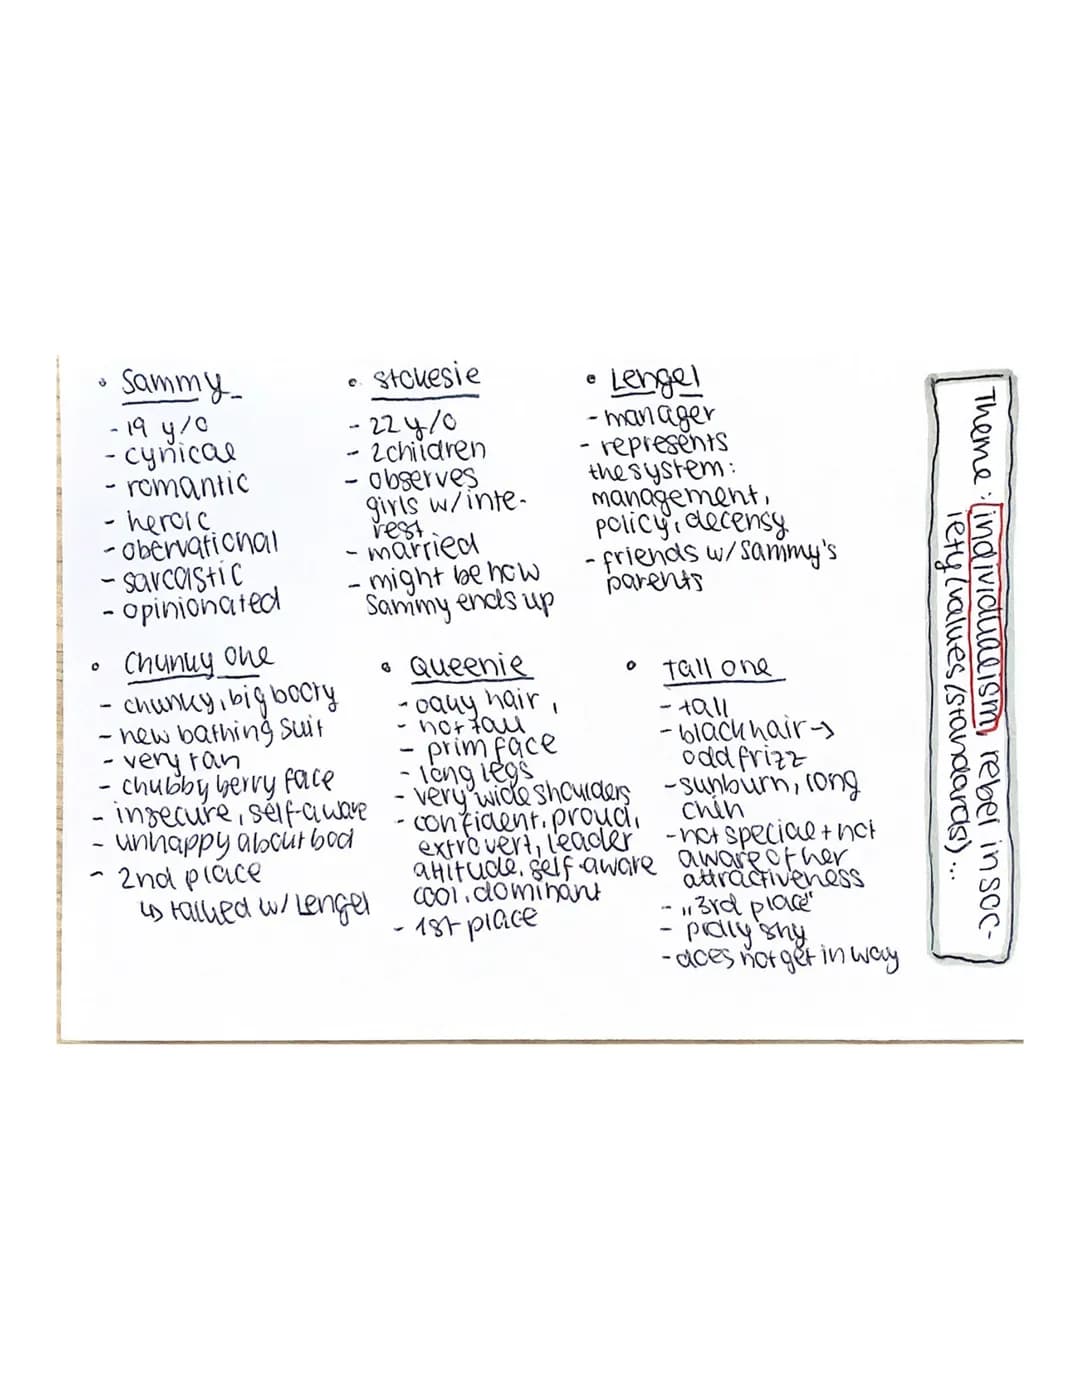 • Sammy
- 19 y/o
- cynical
- romantic
- heroic
- obervational
- sarcastic
- opinionated
• Stokesie
- 22 y/o
- 2 children
- observes
girls w/ inte-
rest
- married
- might be how
Sammy ends up
• Lengel
- manager
- represents
the system:
management,
policy, decensy
- friends w/ Sammy's
parents
• Chunky one
- chunky, big booty
- new bathing suit
- very tan
- chubby berry face
- insecure, self-aware
- unhappy about bod
- 2nd place
↳ talked w/ Lengel
• Queenie
- oaky hair,
- not tall
- prim face
- long legs
- very wide shoulders
- confident, proud,
extrovert, leader
attitude, self-aware
cool, dominant
- 1st place
• Tall one
- tall
- black hair →
odd frizz
- sunburn, long
chin
- not special + not
aware of her
attractiveness
- „3rd place"
- prolly shy
- does not get in way
Theme: individualism, rebel in soc-
iety (values/standards)...